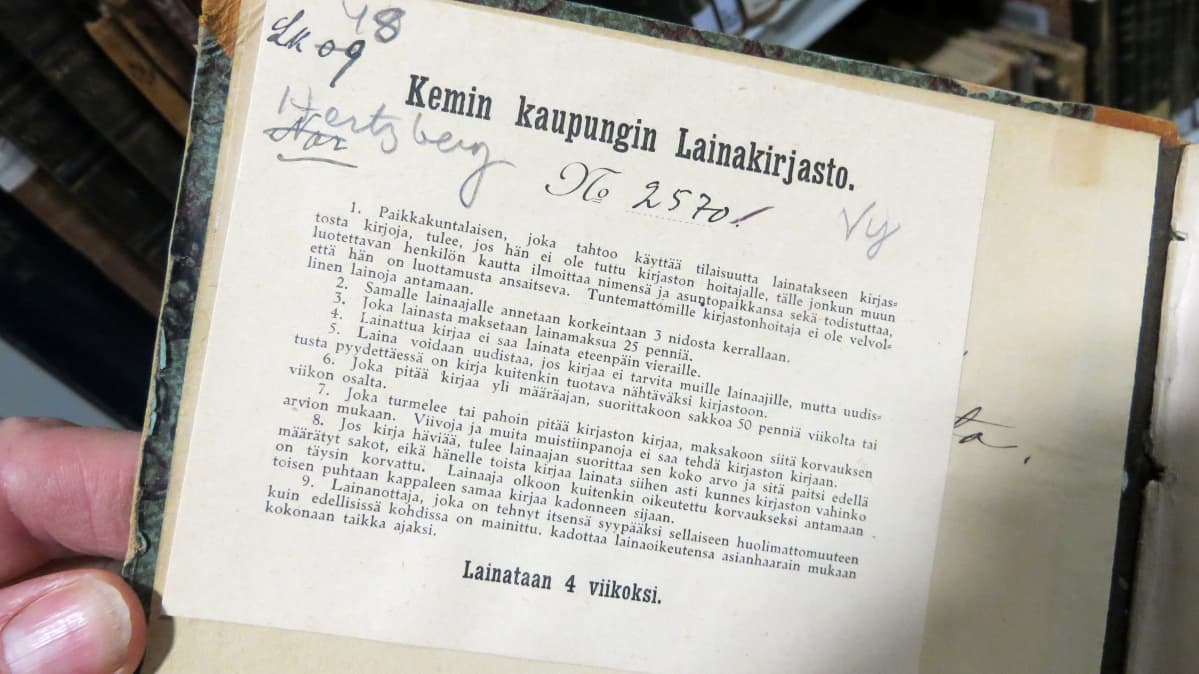 48
Sk 09
Hertzberg
Nar
Kemin kaupungin Lainakirjasto.
No 2570.
Vy
1. Paikkakuntalaisen, joka tahtoo käyttää tilaisuutta lainatakseen kirjas=
tosta kirjoja, tulee, jos hän ei ole tuttu kirjaston hoitajalle, tälle jonkun muun
luotettavan henkilön kautta ilmoittaa nimensä ja asuntopaikkansa sekä todistuttaa,
että hän on luottamusta ansaitseva. Tuntemattomille kirjastonhoitaja ei ole velvol=
linen lainoja antamaan.
2. Samalle lainaajalle annetaan korkeintaan 3 nidosta kerrallaan.
3. Joka lainasta maksetaan lainamaksua 25 penniä.
4. Lainattua kirjaa ei saa lainata eteenpäin vieraille.
5. Laina voidaan uudistaa, jos kirjaa ei tarvita muille lainaajille, mutta uudis=
tusta pyydettäessä on kirja kuitenkin tuotava nähtäväksi kirjastoon.
6. Joka pitää kirjaa yli määräajan, suorittakoon sakkoa 50 penniä viikolta tai
viikon osalta.
7. Joka turmelee tai pahoin pitää kirjaston kirjaa, maksakoon siitä korvauksen
arvion mukaan. Viivoja ja muita muistiinpanoja ei saa tehdä kirjaston kirjaan.
8. Jos kirja häviää, tulee lainaajan suorittaa sen koko arvo ja sitä paitsi edellä
määrätyt sakot, eikä hänelle toista kirjaa lainata siihen asti kunnes kirjaston vahinko
on täysin korvattu. Lainaaja olkoon kuitenkin oikeutettu korvaukseksi antamaan
toisen puhtaan kappaleen samaa kirjaa kadonneen sijaan.
9. Lainanottaja, joka on tehnyt itsensä syypääksi sellaiseen huolimattomuuteen
kuin edellisissä kohdissa on mainittu, kadottaa lainaoikeutensa asianhaarain mukaan
kokonaan taikka ajaksi.
Lainataan 4 viikoksi.
ta.